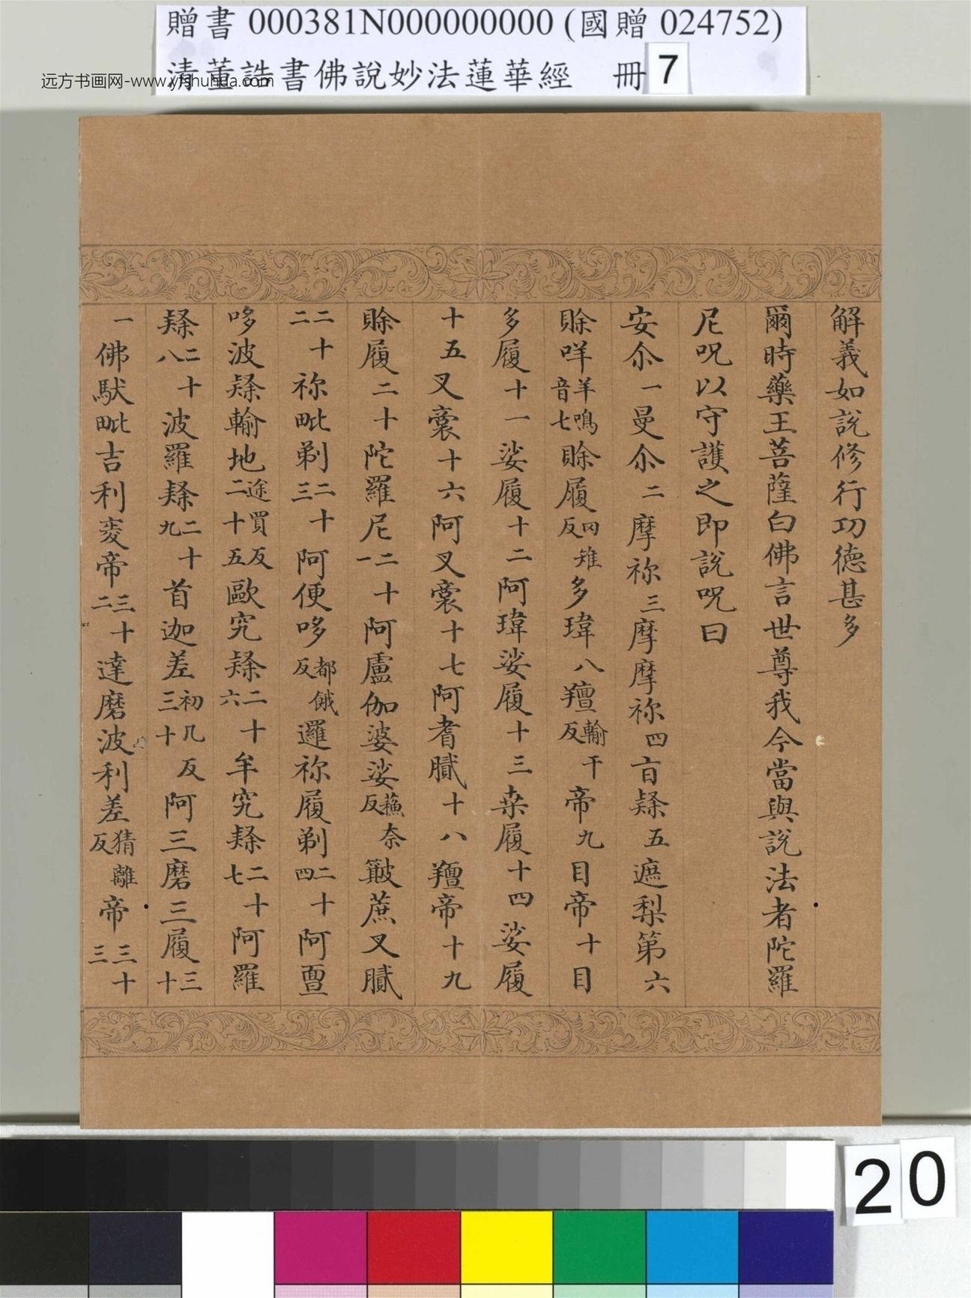 贈書 000381N000000000 (國贈 024752)
清董誥書佛說妙法蓮華經 冊 7
远方书画网-www.yfshuhua.com
解義如說修行功德甚多
爾時藥王菩薩白佛言世尊我今當與說法者陀羅
尼呪以守護之即說呪曰
安尒一曼尒二摩祢三摩摩祢四旨䋈五遮梨第六
賖咩羊鳴音七賖履罔雉反多瑋八羶輸干反帝九目帝十目
多履十一娑履十二阿瑋娑履十三桒履十四娑履
十五叉裛十六阿叉裛十七阿耆膩十八羶帝十九
賖履二十陀羅尼二十一阿盧伽婆娑蘓奈反簸蔗叉膩
二十二祢毗剃二十三阿便哆都餓反邏祢履剃二十四阿亶
哆波䋈輸地途買反二十五歐究䋈二十六牟究䋈二十七阿羅
䋈二十八波羅䋈二十九首迦差初几反三十阿三磨三履三十
一佛馱毗吉利袠帝三十二達磨波利差猜離反帝三十三
20